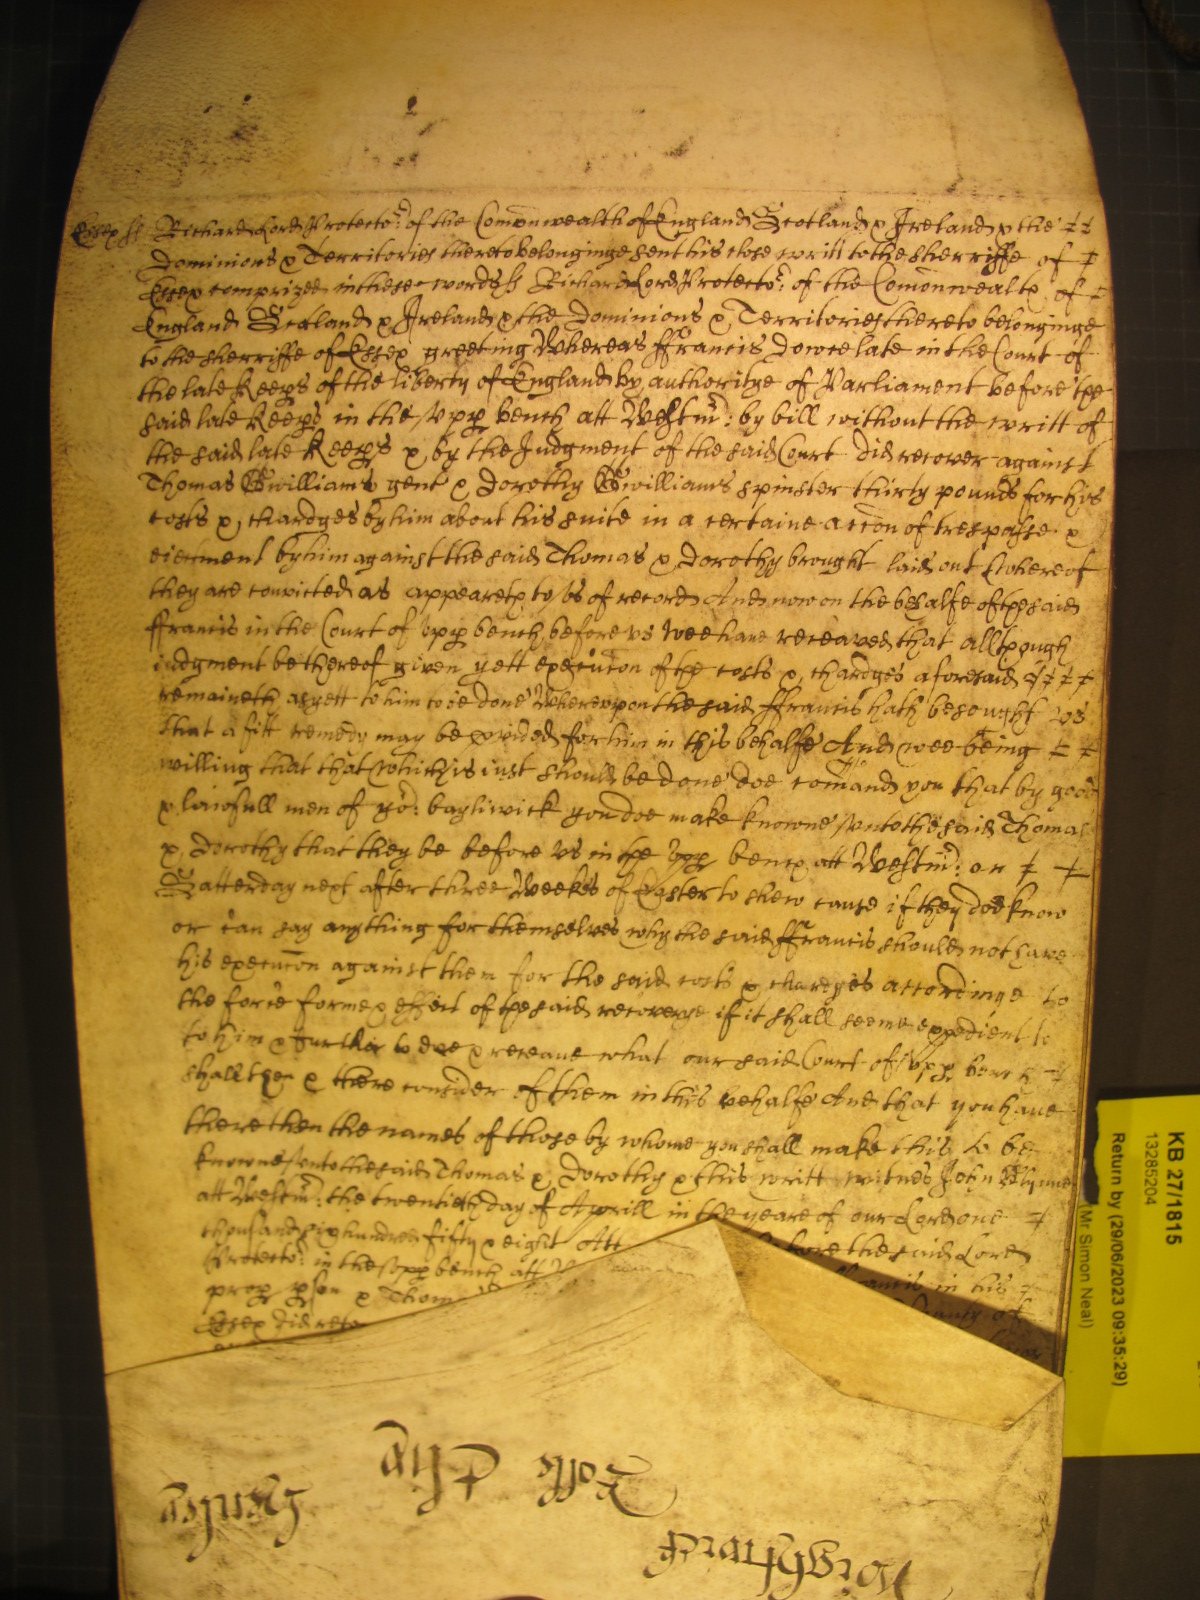 Essex ss Richard Lord Protector of the Comonwealth of England Scotland & Ireland & the
Dominions & Territories thereto belonginge sent his close writt to the sherriffe of
Essex comprized in these words ss Richard Lord Protector of the Comonwealth of
England Scotland & Ireland & the Dominions & Territories thereto belonginge
to the sherriffe of Essex greeting Whereas ffrancis Dowe late in the Court of
the late Keeps of the liberty of England by authoritye of Parliament before the
said late Keeps in the upp bench att Westmr: by bill without the writt of
the said late Keeps & by the Judgment of the said Court did recover against
Thomas Gwilliams gent & Dorothy Gwilliams spinster thirty pounds for his
costs & chardges by him about his suite in a certaine accon of trespasse &
eiectment by him against the said Thomas & Dorothy brought laid out Whereof
they are convicted as appeareth to us of record And now on the behalfe of the said
ffrancis in the Court of upp bench before us wee have receaved that although
iudgment be thereof given yett execucon of the costs & chardges aforesaid
remaineth as yett to him to be done Whereupon the said ffrancis hath besought us
that a fitt remedy may be pvided for him in this behalfe And wee being
willing that that which is iust should be done doe comand you that by good
& lawfull men of yor: bayliwick you doe make knowne unto the said Thomas
& Dorothy that they be before us in the upp bench att Westmr: on
Satterday next after three Weekes of Easter to shew cause if they doe know
or can say anything for themselves why the said ffrancis should not have
his execucon against them for the said costs & chardges accordinge to
the force forme & effect of the said recoverye if it shall seeme expedient to
to him & further to doe & receave what our said Court of upp bench
shall then & there consider of them in this behalfe And that you have
there then the names of those by whome you shall make this to be
knowne unto the said Thomas & Dorothy & this writt witnes John Glynne
att Westmr: the twentieth day of Aprill in the yeare of our Lord one
thousand six hundred fifty & eight Att before the said Lord
Protector: in the upp bench att ffrancis in his
prop pson & Thom County of
Essex did retor
KB 27/1815
13285204
Return by (29/06/2023 09:35:29)
(Mr Simon Neal)